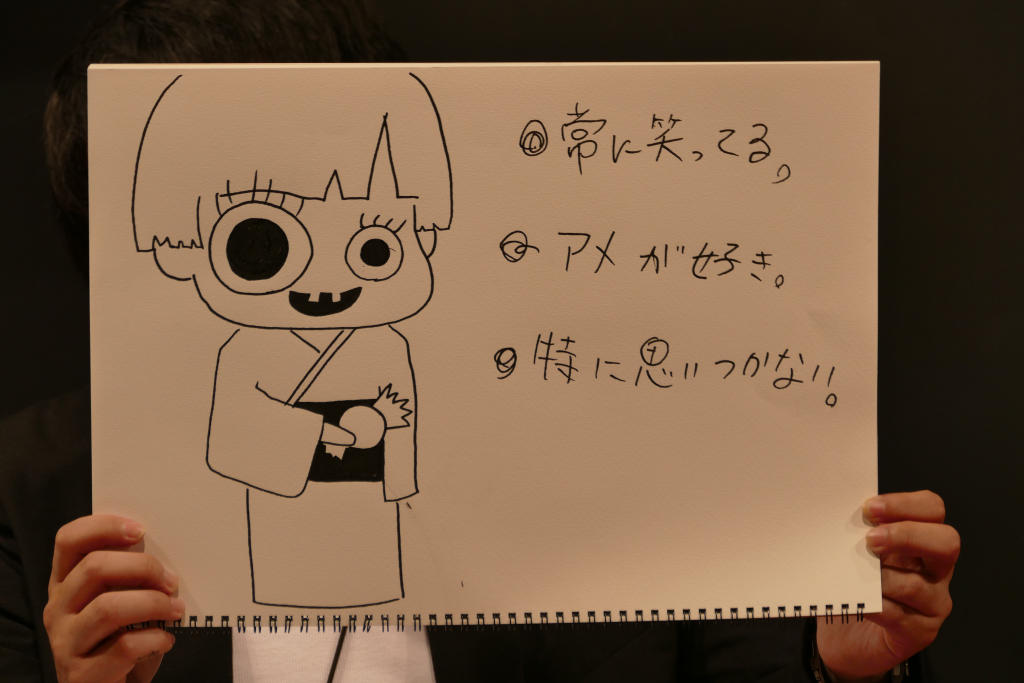 常に笑ってる。
アメが好き。
特に思いつかない。